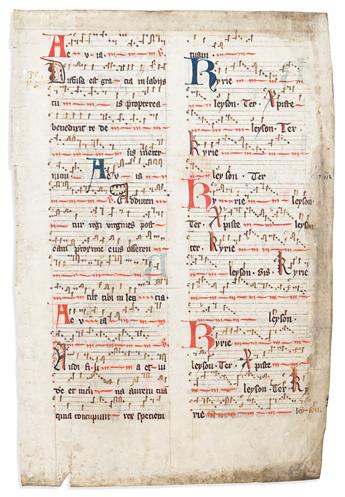 Ae v ia
Diffusa est gra cia in labiis
tu is propterea
benedixit te de
us in eter
num Ae v ia
Adducen
tur regi virgines post
eam proxime eius afferen
tur tibi in leti cia.
Ae v ia
Audi fi li a et vi
de et incli na aurem tua
quia concupivit rex speciem
tuam
Kyrie
leyson. Ter. Xpiste
leyson. Ter
Kyrie
leyson. Ter.
Ky rie leyson
Ter. Xpiste leyson
ter. Kyrie
leyson. Kyrie
leyson.
Kyrie
leyson. Ter. Xpiste
leyson. Ter. Ky
rie ley son